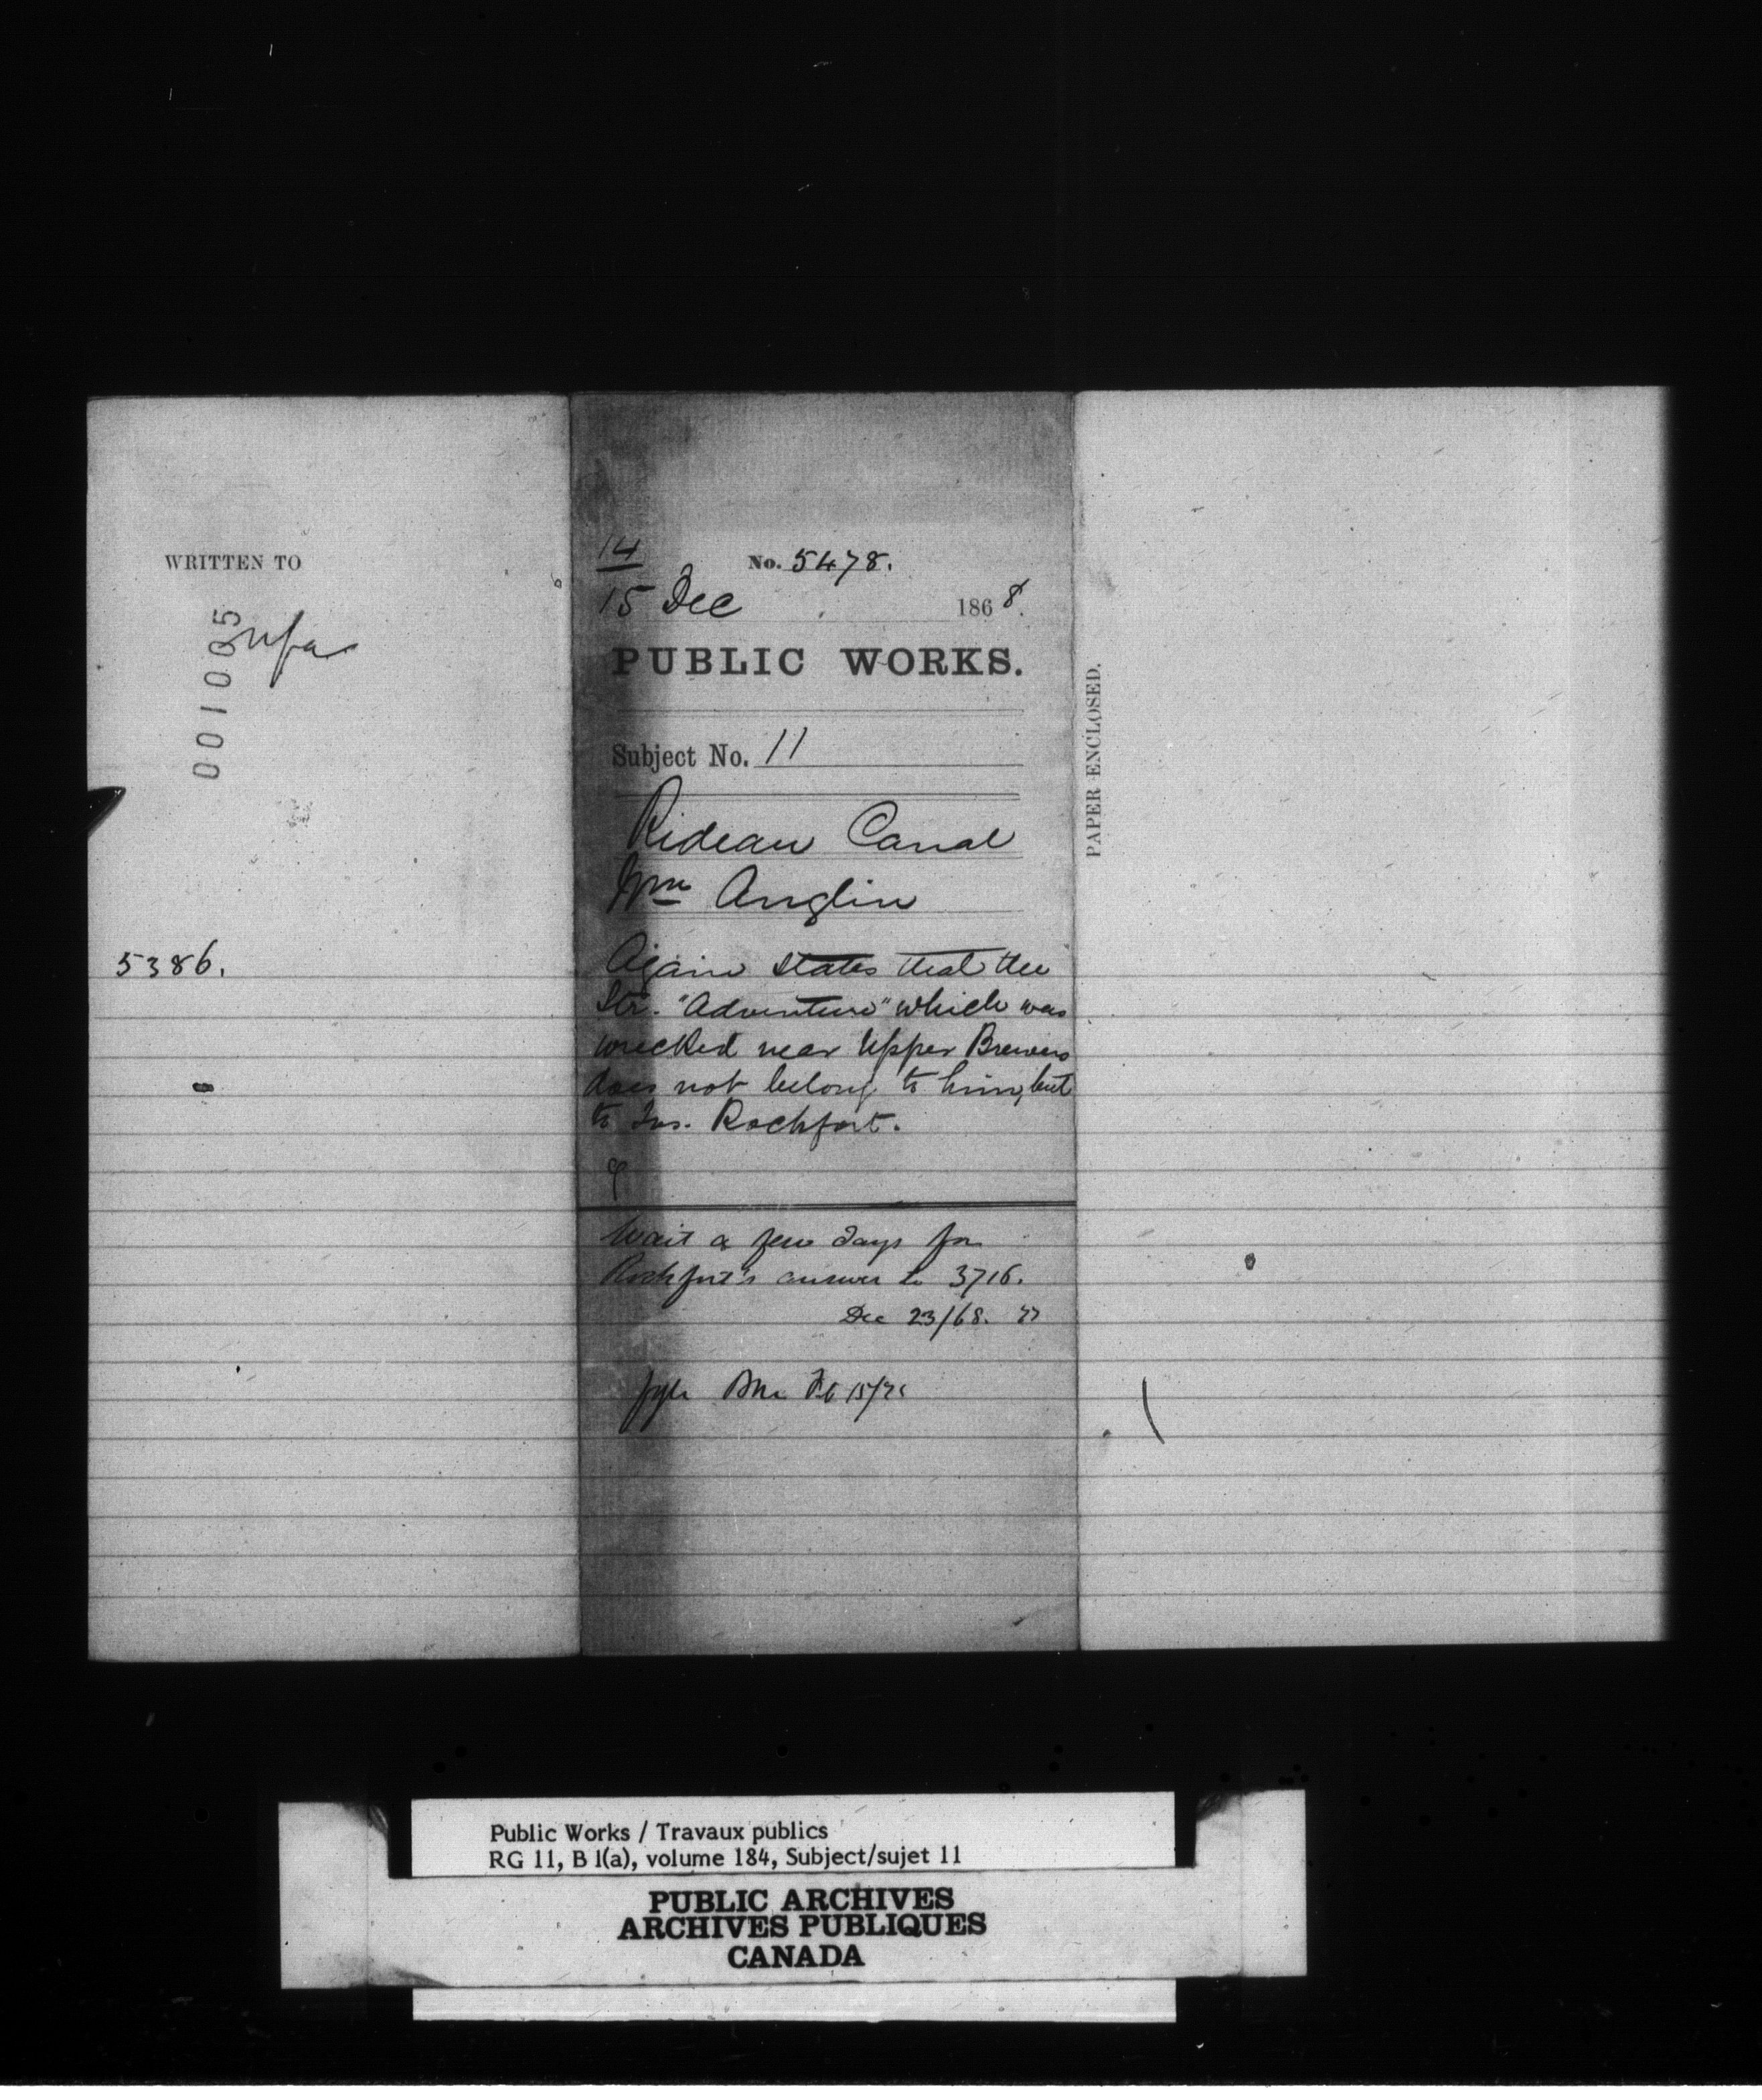 WRITTEN TO
001005
nfa
5386.
14
No. 5478.
15 Dec 1868.
PUBLIC WORKS.
Subject No. 11
Rideau Canal
Wm Anglin
Again states that the
Str. "Adventure" which was
wrecked near Upper Brewers
does not belong to him, but
to Jas. Rochfort.
Wait a few days for
Rochfort's answer to 3716.
Dec 23/68.
Feb 15/
PAPER ENCLOSED.
Public Works / Travaux publics
RG 11, B 1(a), volume 184, Subject/sujet 11
PUBLIC ARCHIVES
ARCHIVES PUBLIQUES
CANADA